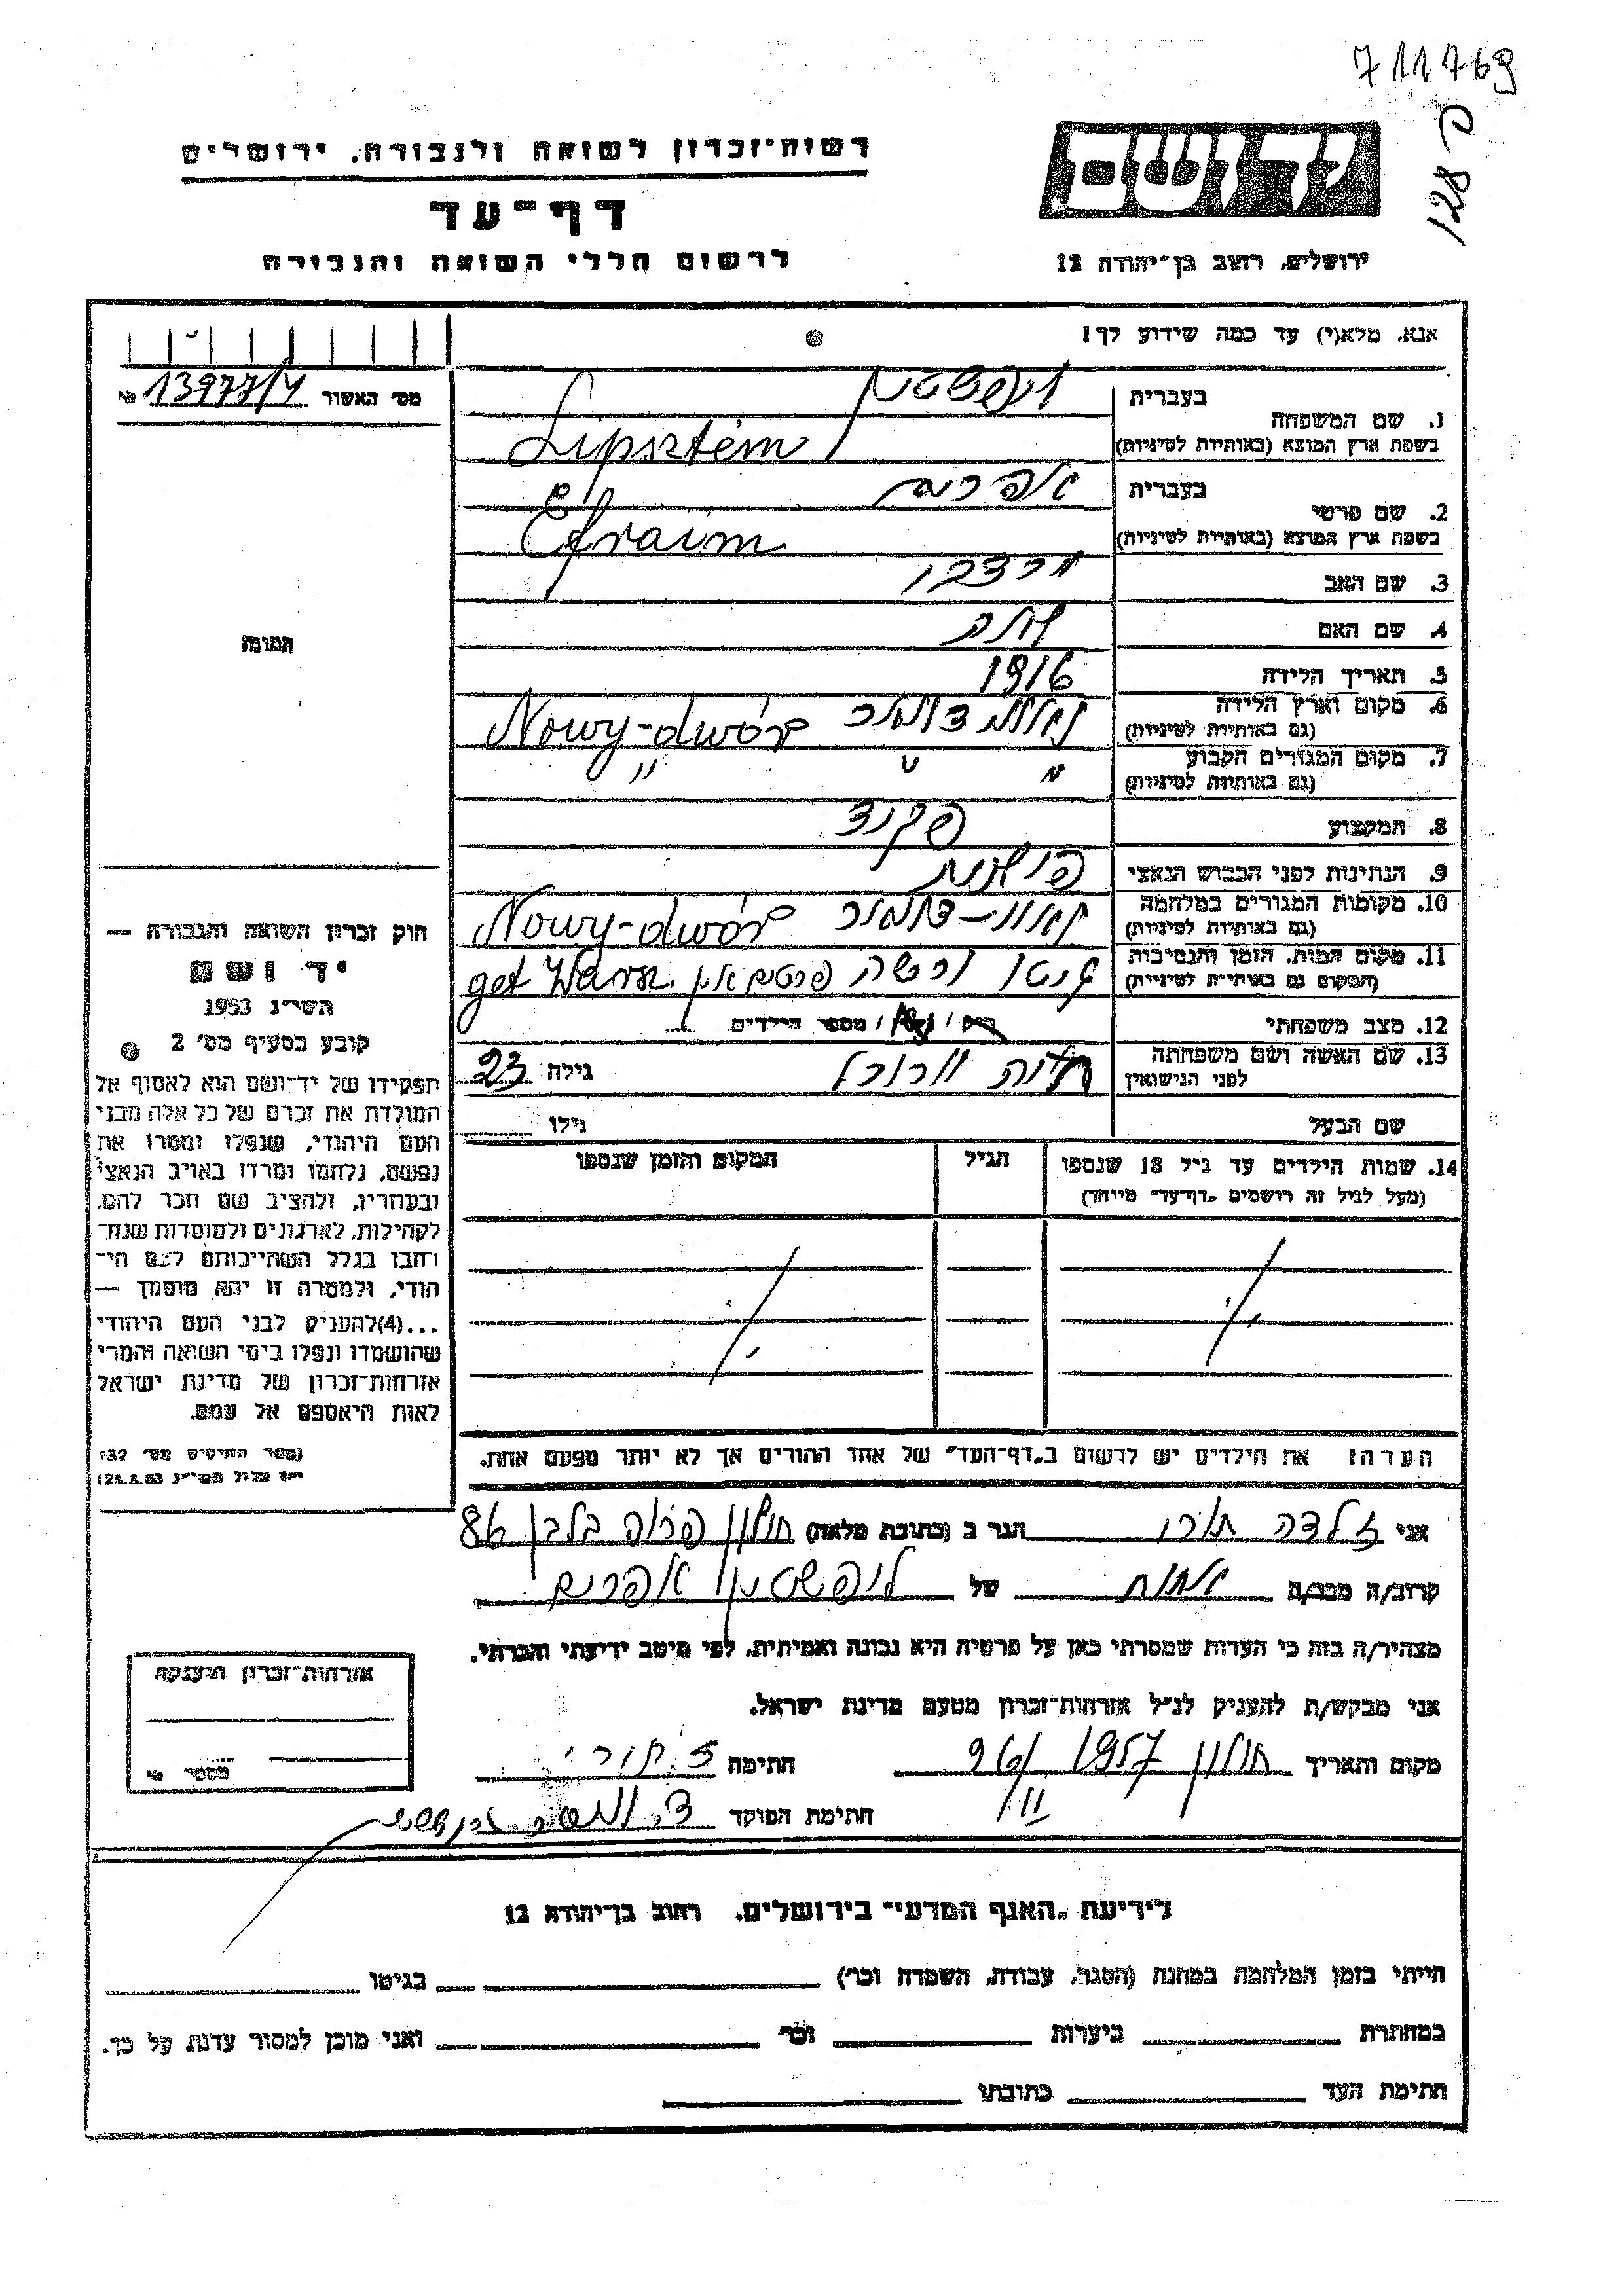 711769
128 פ
יד ושם
רשות־זכרון לשואה ולגבורה, ירושלים
דף־עד
לרשום חללי השואה והגבורה
ירושלים, רחוב בן־יהודה 12
אנא, מלא(י) עד כמה שידוע לך!
מס׳ האשור № 13977/4
1. שם המשפחה בעברית ליפשטין
בשפת ארץ המוצא (באותיות לטיניות) Lipsztein
2. שם פרטי בעברית אפרים
בשפת ארץ המוצא (באותיות לטיניות) Efraim
3. שם האב מרדכי
4. שם האם
תמונה
5. תאריך הלידה 1916
6. מקום וארץ הלידה (גם באותיות לטיניות) Nowy-dwór
7. מקום המגורים הקבוע (גם באותיות לטיניות) " " "
8. המקצוע פקיד
9. הנתינות לפני הכבוש הנאצי פולנית
10. מקומות המגורים במלחמה (גם באותיות לטיניות) Nowy-dwór
11. מקום המות, הזמן והנסיבות (המקום גם באותיות לטיניות) גיטו ורשה פרטים אין get Warsz.
12. מצב משפחתי רווק / נשוי / מספר הילדים
13. שם האשה ושם משפחתה לפני הנישואין גילה 23
שם הבעל גילו
14. שמות הילדים עד גיל 18 שנספו (מעל לגיל זה רושמים „דף־עד״ מיוחד)
הגיל
המקום והזמן שנספו
הערה: את הילדים יש לרשום ב„דף־העד״ של אחד ההורים אך לא יותר מפעם אחת.
חוק זכרון השואה והגבורה —
יד ושם
תשי״ג 1953
קובע בסעיף מס׳ 2
תפקידו של יד־ושם הוא לאסוף אל
המולדת את זכרם של כל אלה מבני
העם היהודי, שנפלו ומסרו את
נפשם, נלחמו ומרדו באויב הנאצי
ובעוזריו, ולהציב שם וזכר להם,
לקהילות, לארגונים ולמוסדות שנח־
רבו בגלל השתייכותם לעם הי־
הודי, ולמטרה זו יהא מוסמך —
...(4)להעניק לבני העם היהודי
שהושמדו ונפלו בימי השואה והמרי
אזרחות־זכרון של מדינת ישראל
לאות היאספם אל עמם.
(ספר החוקים מס׳ 132
אני זלדה תורי הגר ב (כתובת מלאה) חולון 86
קרוב/ה מכר/ה אחות של ליפשטין אפרים
מצהיר/ה בזה כי העדות שמסרתי כאן על פרטיה היא נכונה ואמיתית, לפי מיטב ידיעתי והכרתי.
אני מבקש/ת להעניק לנ״ל אזרחות־זכרון מטעם מדינת ישראל.
מקום ותאריך חולון 1957 26/II חתימה ז. תורי
חתימת הפוקד
אזרחות־זכרון הוענקה
מספר
לידיעת „האגף המדעי״ בירושלים, רחוב בן־יהודה 12
הייתי בזמן המלחמה במחנה (הסגר, עבודה, השמדה וכו׳) בגיטו
במחתרת ביערות וכו׳ ואני מוכן למסור עדות על כך.
חתימת העד כתובתו